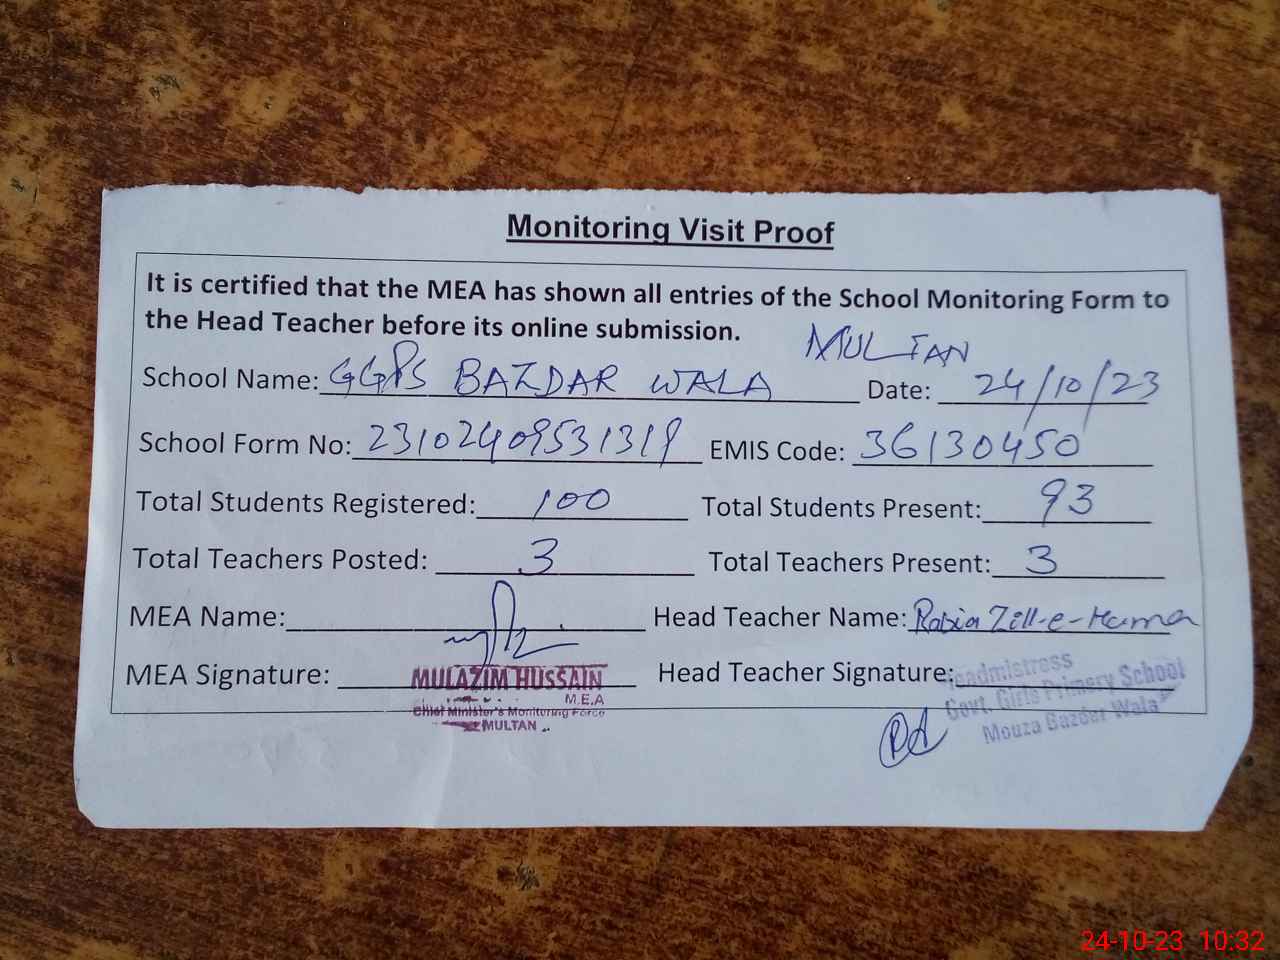 Monitoring Visit Proof
It is certified that the MEA has shown all entries of the School Monitoring Form to
the Head Teacher before its online submission.
MULTAN
School Name: GGPS BAZDAR WALA Date: 24/10/23
School Form No: 23102409531319 EMIS Code: 36130450
Total Students Registered: 100 Total Students Present: 93
Total Teachers Posted: 3 Total Teachers Present: 3
MEA Name: Head Teacher Name: Rabia Zill-e-Huma
MEA Signature: Head Teacher Signature:
MULAZIM HUSSAIN
M.E.A
Chief Minister's Monitoring Force
MULTAN
Headmistress
Govt. Girls Primary School
Mouza Bazder Wala
24-10-23 10:32